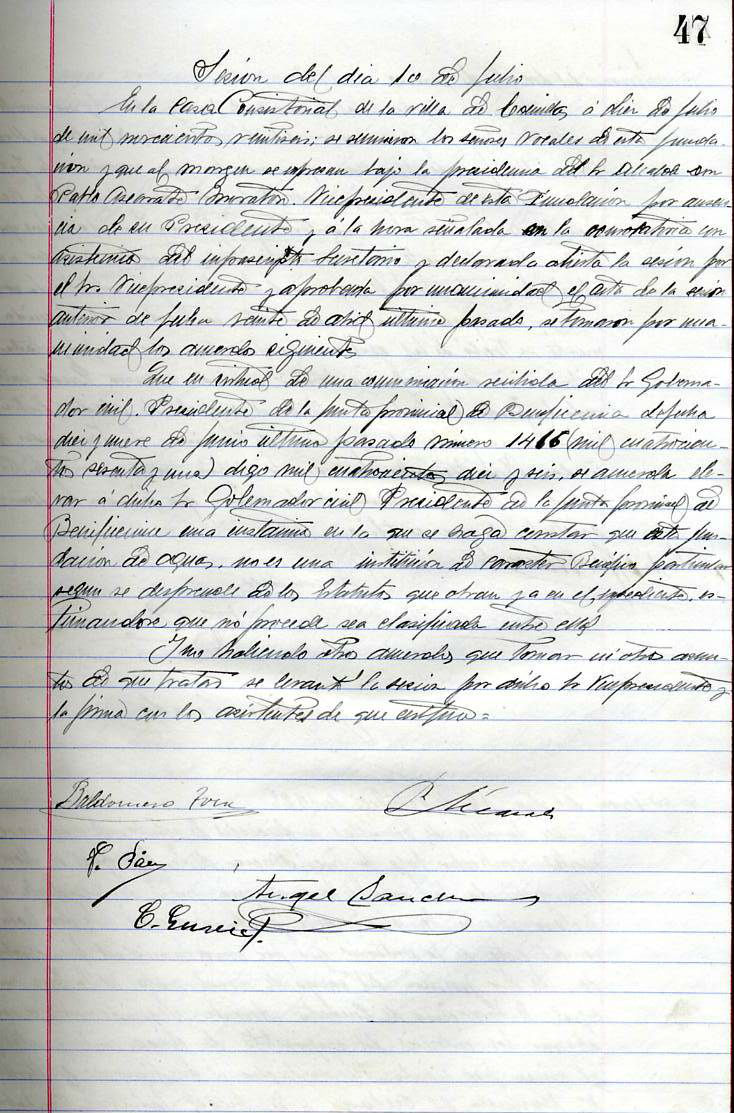 47
Sesion del dia 10 de Julio
En la Casa Consistorial de la villa de Comillas á diez de Julio
de mil novecientos veintiseis; se reunieron los señores Vocales de esta funda-
ción y que al margen se expresan bajo la presidencia del Sr Alcalde Don
Pablo Vicepresidente de esta Fundación por ausen-
cia de su Presidente y á la hora señalada en la convocatoria con
asistencia del infrascripto Secretario y declarada abierta la sesion por
el Sr Vicepresidente y aprobada por unanimidad el acta de la sesion
anterior de fecha veinte de abril ultimo pasado, se tomaron por una-
nimidad los acuerdos siguientes
Que en virtud de una comunicación recibida del Sr Goberna-
dor civil, Presidente de la Junta provincial de Beneficencia de fecha
diez y nueve de Junio último pasado número 1416 (mil cuatrocien-
tos sesenta y uno) digo mil cuatrocientos diez y seis, se acuerda ele-
var a dicho Sr Gobernador civil Presidente de la Junta provincial de
Benificencia una instancia en la que se haga constar que esta fun-
dación de aguas, no es una institución de caracter Benéfico particular
segun se desprende de los Estatutos que obran ya en el expediente, es-
timandose que no procede sea clasificada entre ellas
Y no habiendo otros acuerdos que tomar ni otros asun-
tos de que tratar se levantó la sesion por dicho Sr Vicepresidente y
la firma con los asistentes de que certifico =
Baldomero
Angel Sanchez